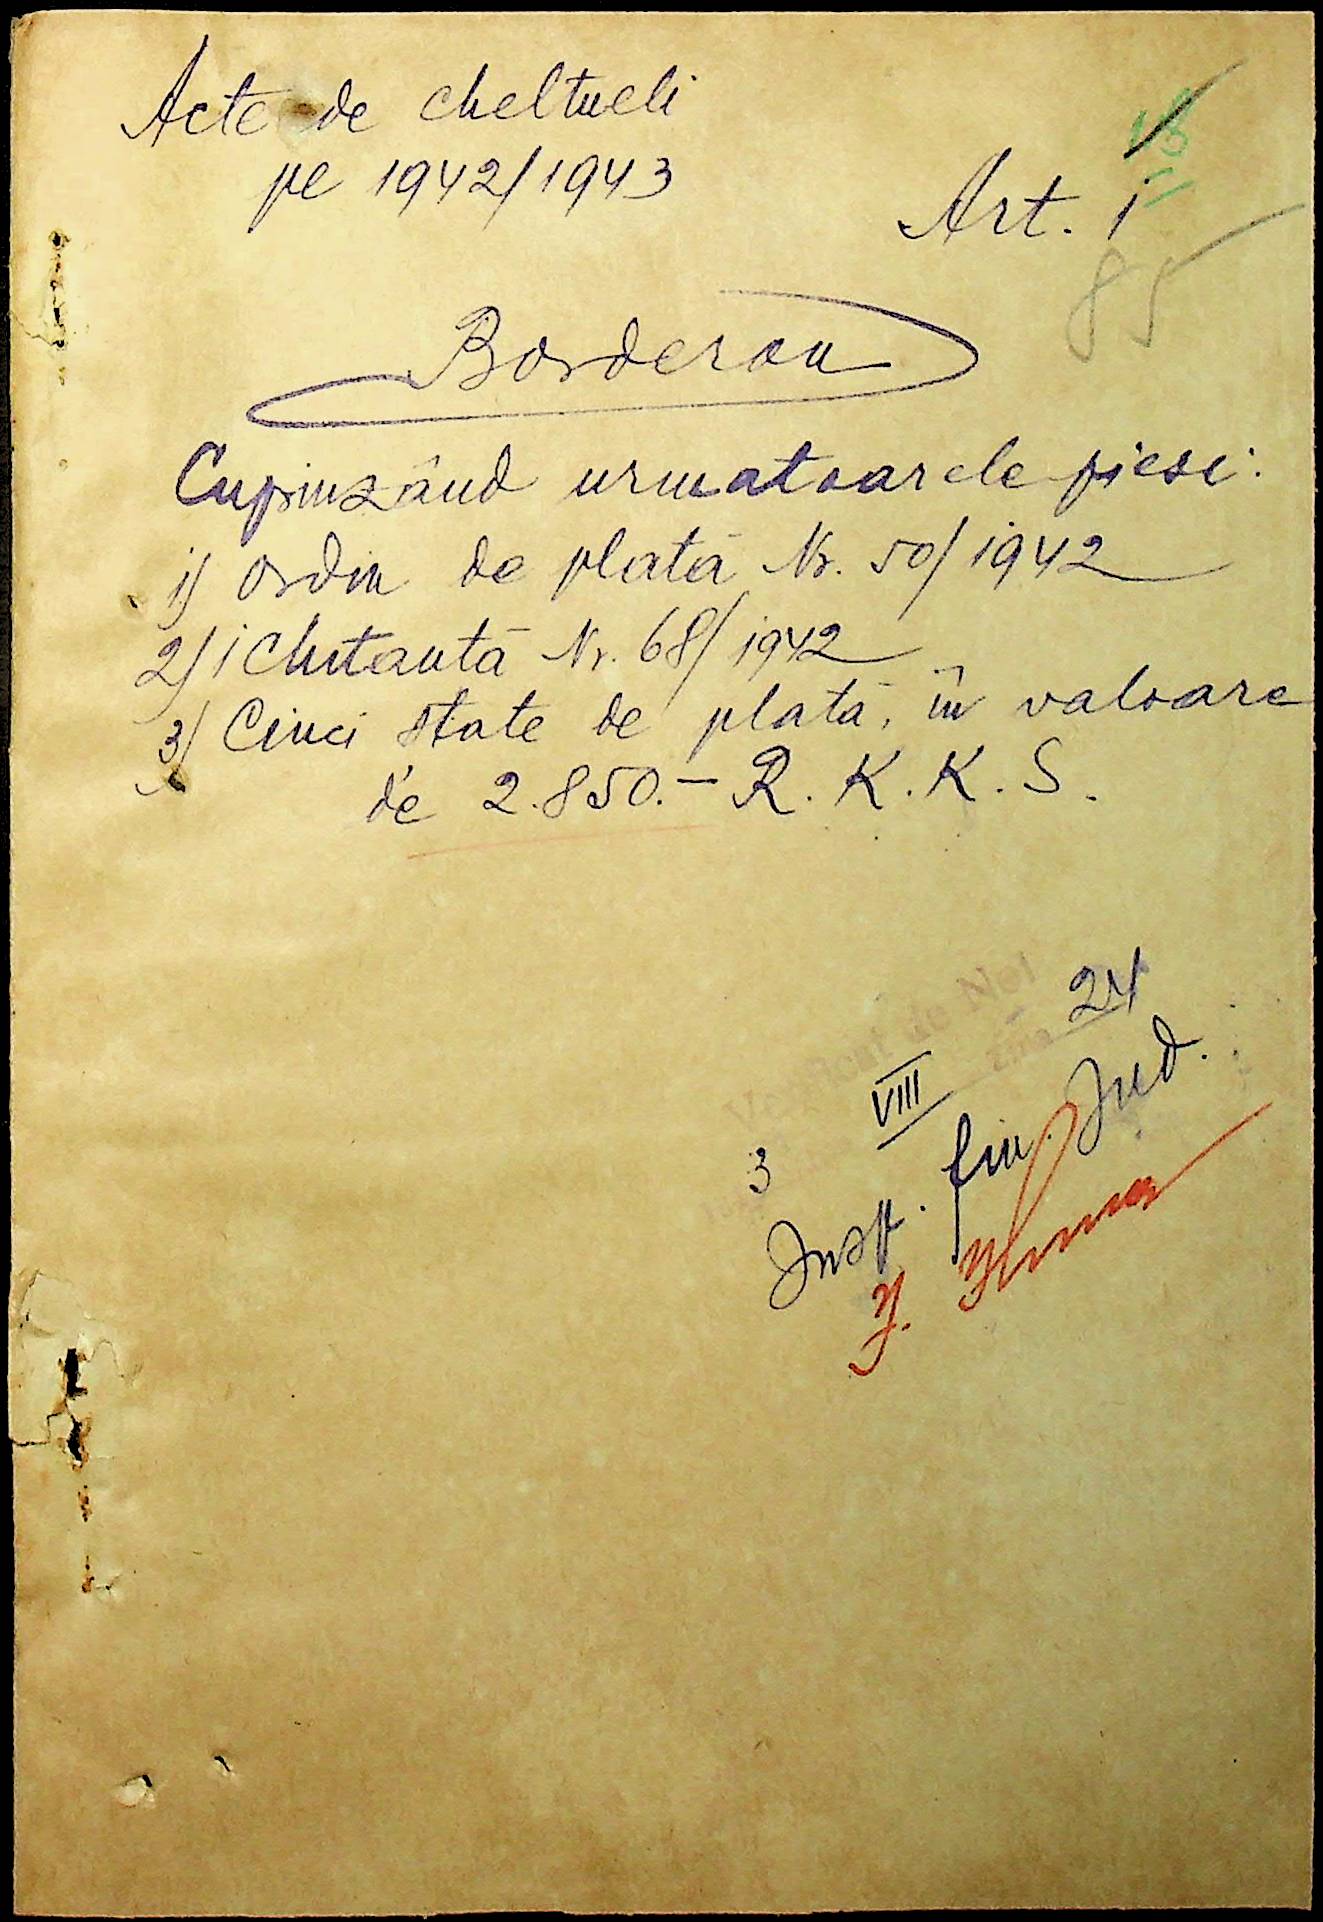 Acte de cheltueli
pe 1942/1943
13
Art. 1
85
Borderou
Cuprinzând urmatoarele piese:
1) Ordin de plată Nr. 50/1942
2) 1 Chitantă Nr. 68/1942
3) Cinci state de plată, în valoare
de 2.850.- R.K.K.S.
Verificat de Noi
24
ziua
VIII
3
Insp. fin. Jud.